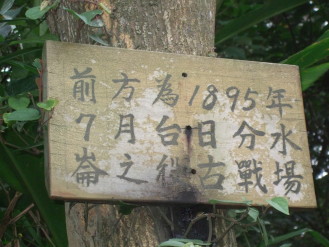 前方為1895年
7月台日分水
崙之古戰場